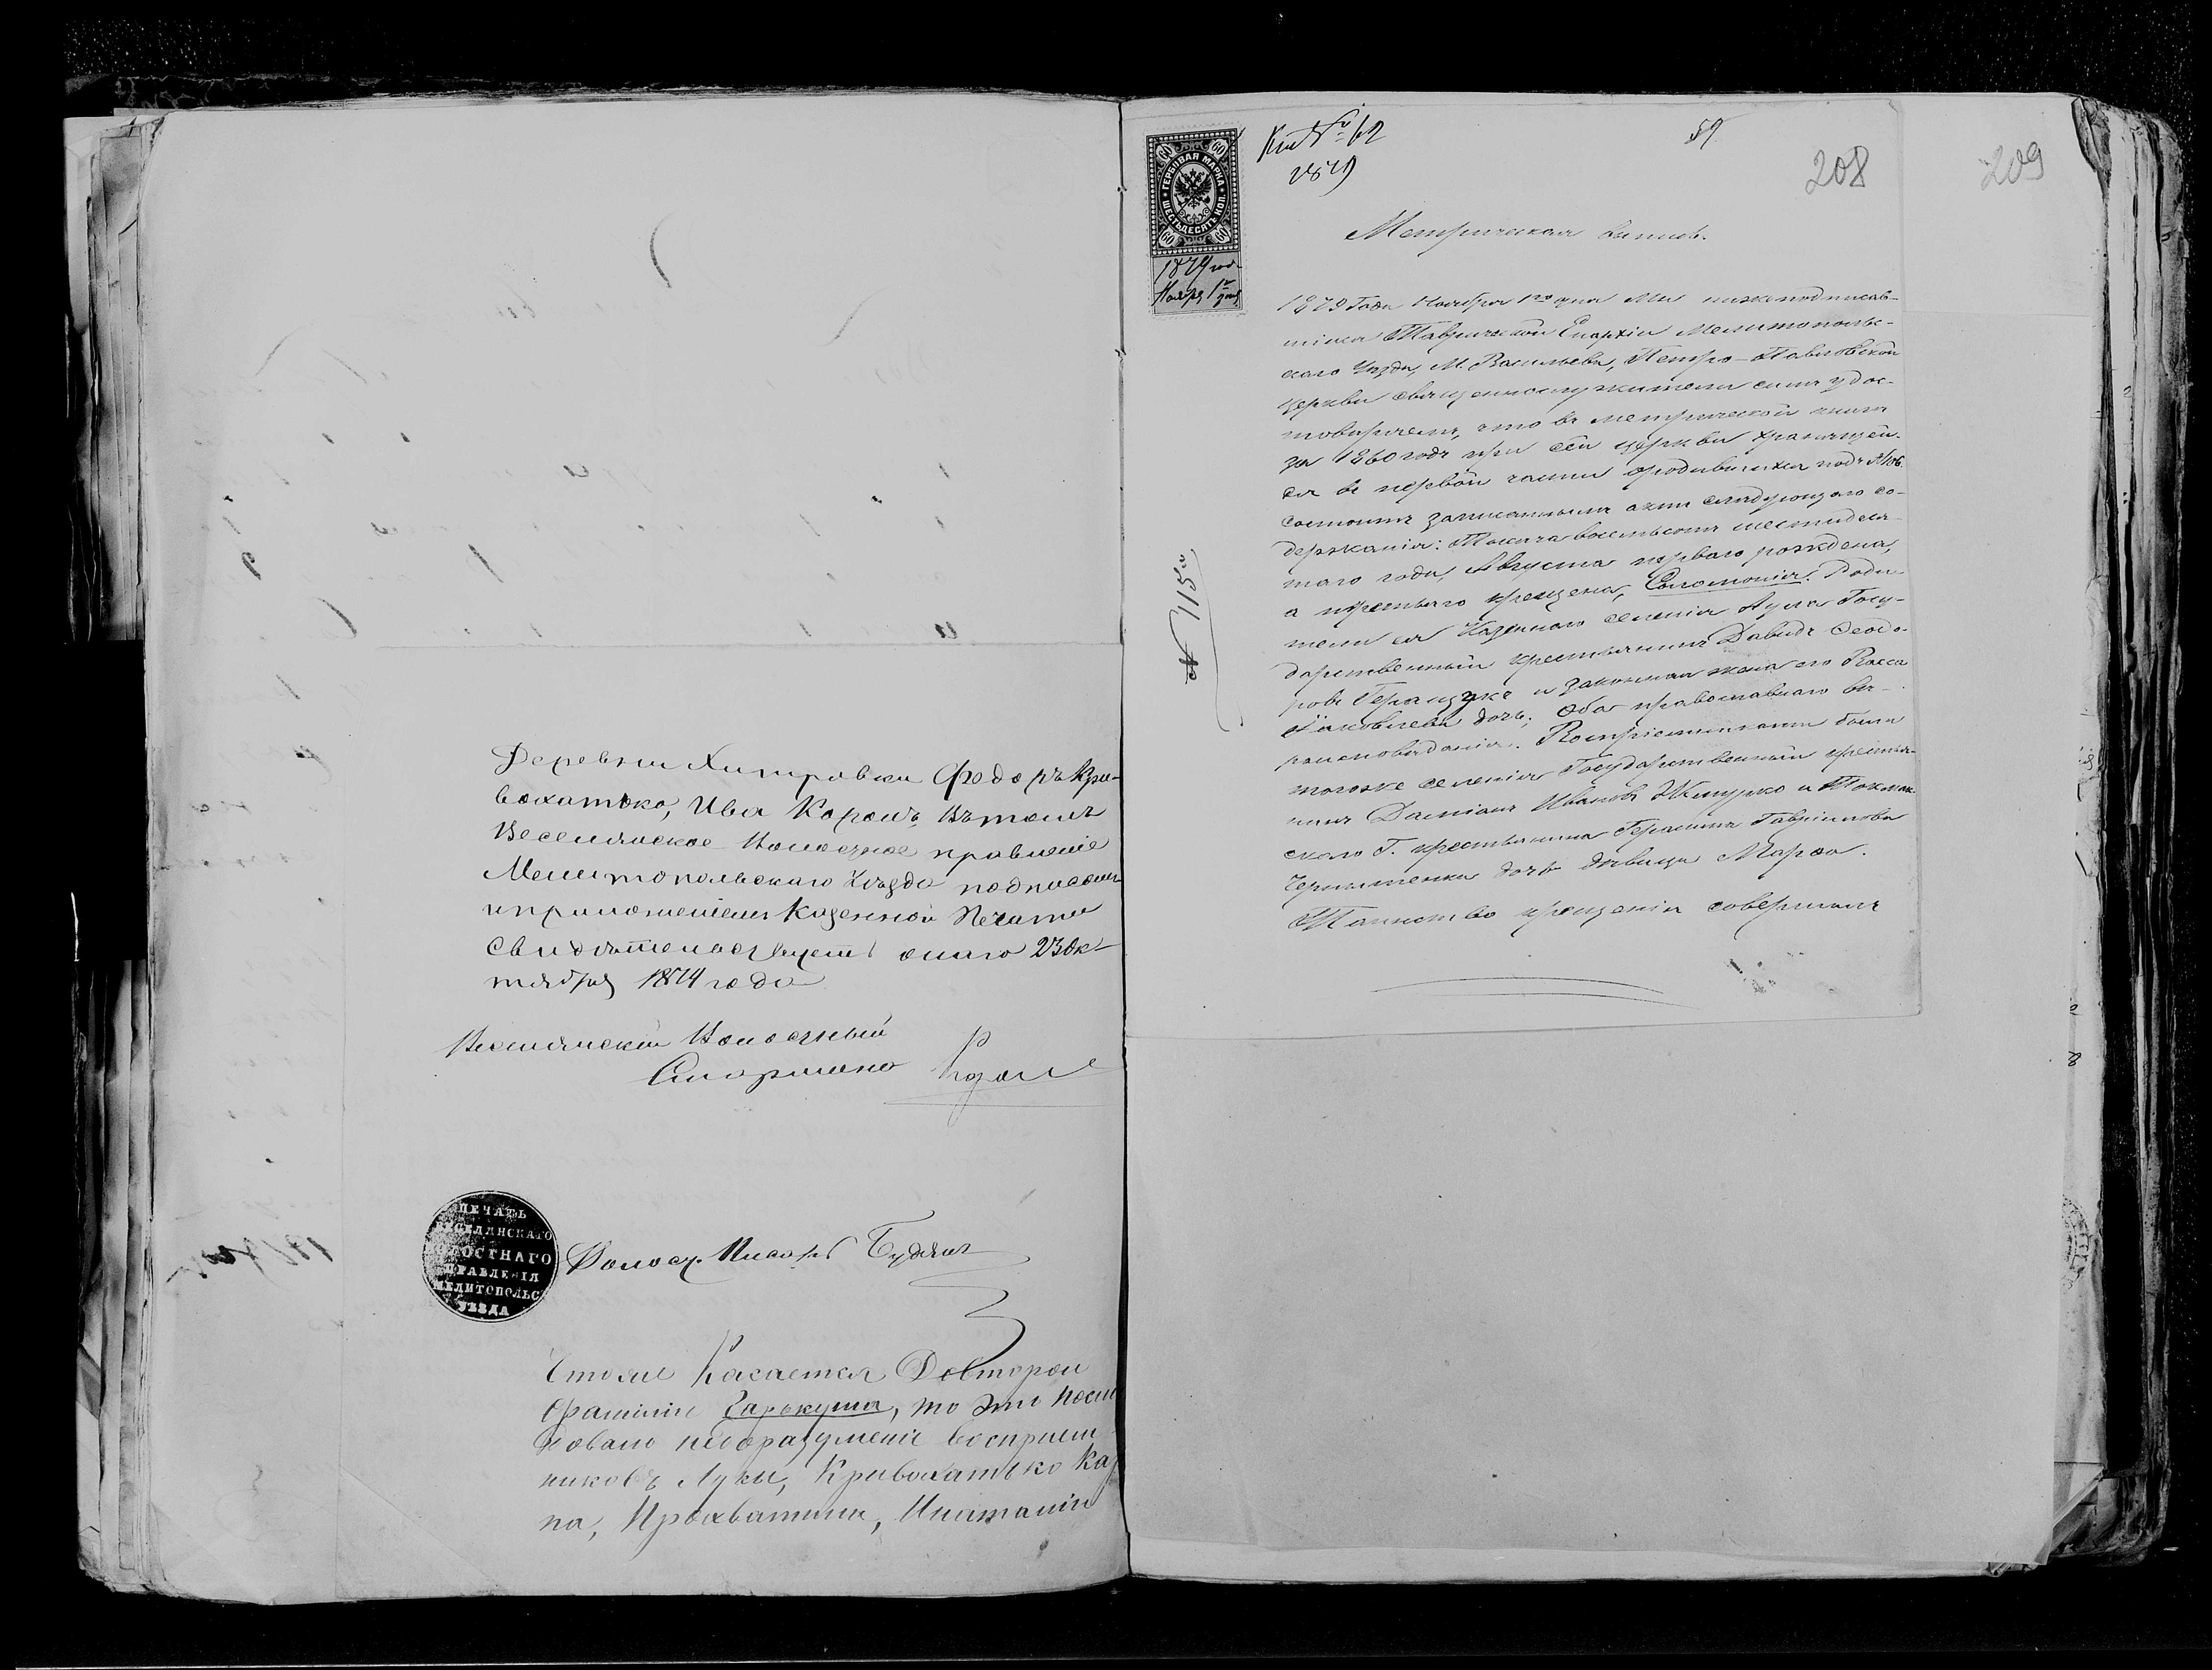 Деревни Хитровки Фодоръ Кри-
вохатько, Ива Король, въ томъ
Веселянское Волосное правленіе
Мелитопольскаго Уѣзда подписомъ
и приложеніемъ Казенной Печати
Свидѣтельствуетъ онаго 23 Ок-
тября 1874 года
Веселянскій Волосный
Старшина
ПЕЧАТЬ
ВЕСЕЛЯНСКАГО
ВОЛОСТНАГО
ПРАВЛЕНІЯ
МЕЛИТОПОЛЬС
УѢЗДА
Волос. Писарь
Чтоже Касается Довторой
Фамиліи Гарькуша, то это посли
довало недоразуменіе восприем
никовъ Луки, Кривохатько Кар
па, Прохватили, Игнатіи
60 60
ГЕРБОВАЯ МАРКА
ШЕСТЬДЕСЯТЪ КОП.
60 60
1879 год
Ноябр 1 дня
№ 62
1879
59
208
209
Метрическая выпись.
1879 Года Ноября 1го дня Мы нижеподписав-
шіеся Таврической Епархіи Мелитопольс-
каго Уѣзда, М. Васильевки, Петро-Павловской
церкви священнослужители симъ удос-
товѣряемъ, что въ метрической книгѣ
за 1860 годъ при сей церкви хранящей-
ся въ первой части о родившихся подъ №106.
состоитъ записаннымъ актъ слѣдующаго со-
держанія: Тысяча восемьсотъ шестидеся-
таго года, Августа перваго рождена,
а третьяго крещена, Соломонія. Роди-
тели ея Казеннаго селенія Аула Госу-
дарственный крестьянинъ Давидъ Феодо-
ровъ и законная жена его
Яковлева дочь; оба православнаго вѣ-
роисповѣданія. Воспріемниками были
тогоже селенія Государственный крестья-
нинъ Даміанъ Ивановъ и Токмак-
скаго Г. крестьянина Герасима Гавріилова
дочь дѣвица Марфа.
Таинство крещенія совершалъ
№ 115й